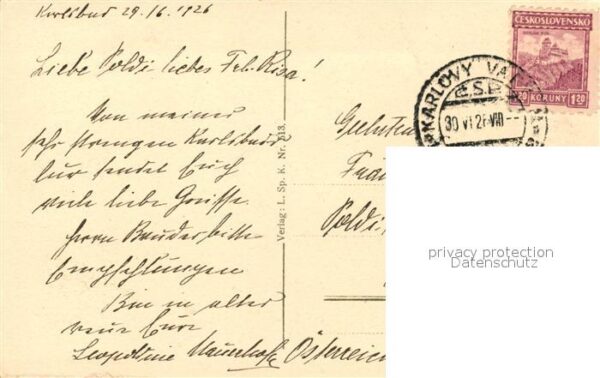 Karlsbad 29.16.'1926
Liebe Poldi liebes Frl. Risa!
Von meiner
sehr strengen Karlsbader
kur sendet Euch
viele liebe Grüsse.
Herrn Bruder bitte
Empfehlungen
Bin in alter
Treue Eure
Leopoldine
Verlag: L. Sp. K. Nr. 313.
ČESKOSLOVENSKO
1.20 KORUNY 1.20
KARLOVY VARY
Č.S.P.
30 VI 26-VIII
Poldi
Österreich
privacy protection
Datenschutz